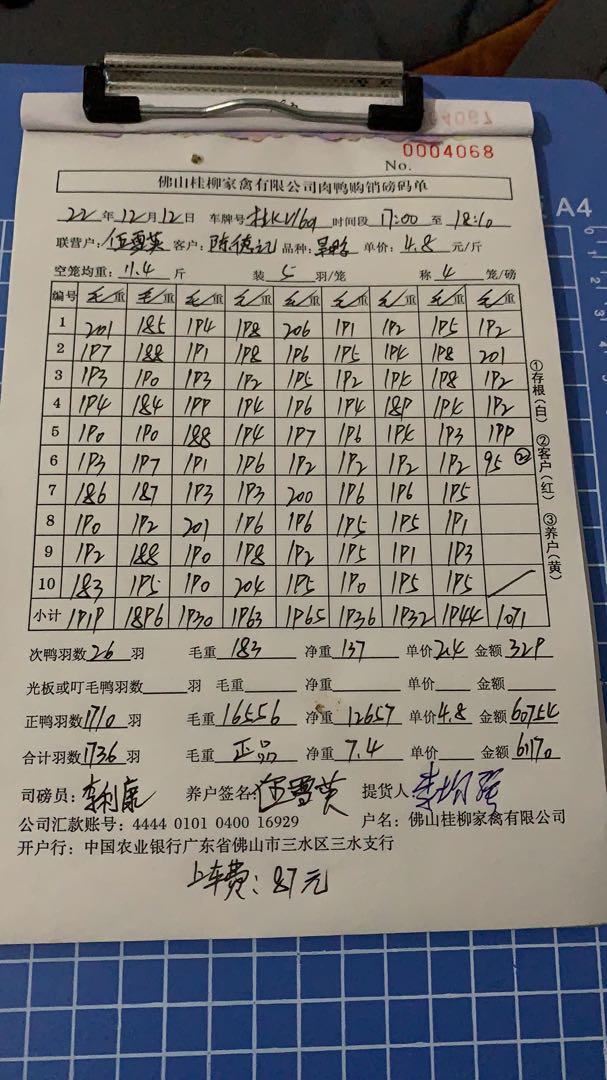 0004067
0004068
No.
佛山桂柳家禽有限公司肉鸭购销磅码单
22年12月12日 车牌号 桂KV169 时间段 17:00 至 18:10
联营户:伍雪英 客户:陈德记 品种: 单价:4.8 元/斤
空笼均重:11.4 斤 装 5 羽/笼 称 4 笼/磅
编号 毛/重 毛/重 毛/重 毛/重 毛/重 毛/重 毛/重 毛/重 毛/重
1 201 185 194 198 206 191 192 195 192
2 197 188 191 198 196 195 194 198 201
3 193 190 193 192 195 192 194 198 192
4 194 184 199 194 196 194 189 194 192
5 190 190 188 194 197 196 194 193 199
6 193 197 191 196 192 192 192 192 95 (22)
7 186 187 193 193 200 196 196 195
8 190 192 201 196 196 195 195 191
9 192 188 190 198 192 195 191 193
10 183 195 190 204 195 190 195 195
小计 1919 1896 1930 1963 1965 1936 1932 1944 1071
①存根(白) ②客户(红) ③养户(黄)
次鸭羽数 26 羽 毛重 183 净重 137 单价 2.4 金额 329
光板或叮毛鸭羽数 羽 毛重 净重 单价 金额
正鸭羽数 1710 羽 毛重 16556 净重 12657 单价 4.8 金额 60754
合计羽数 1736 羽 毛重 正品 净重 7.4 单价 金额 61170
司磅员: 养户签名:伍雪英 提货人
公司汇款账号:4444 0101 0400 16929 户名:佛山桂柳家禽有限公司
开户行:中国农业银行广东省佛山市三水区三水支行
上车费:87元
A4